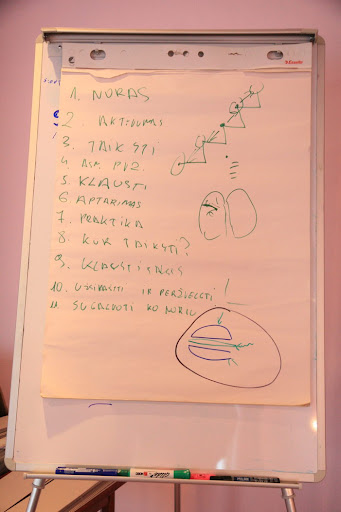 1. NORAS
2. AKTYVUMAS
3. TAIKYTI
4. ASM. PVZ.
5. KLAUSTI
6 APTARIMAS
7. PRAKTIKA
8. KUR TAIKYTI?
9. KLAUSYTIS
10. UŽSIRAŠYTI IR PERŽVELGTI !
11. SUGALVOTI KO NORIU